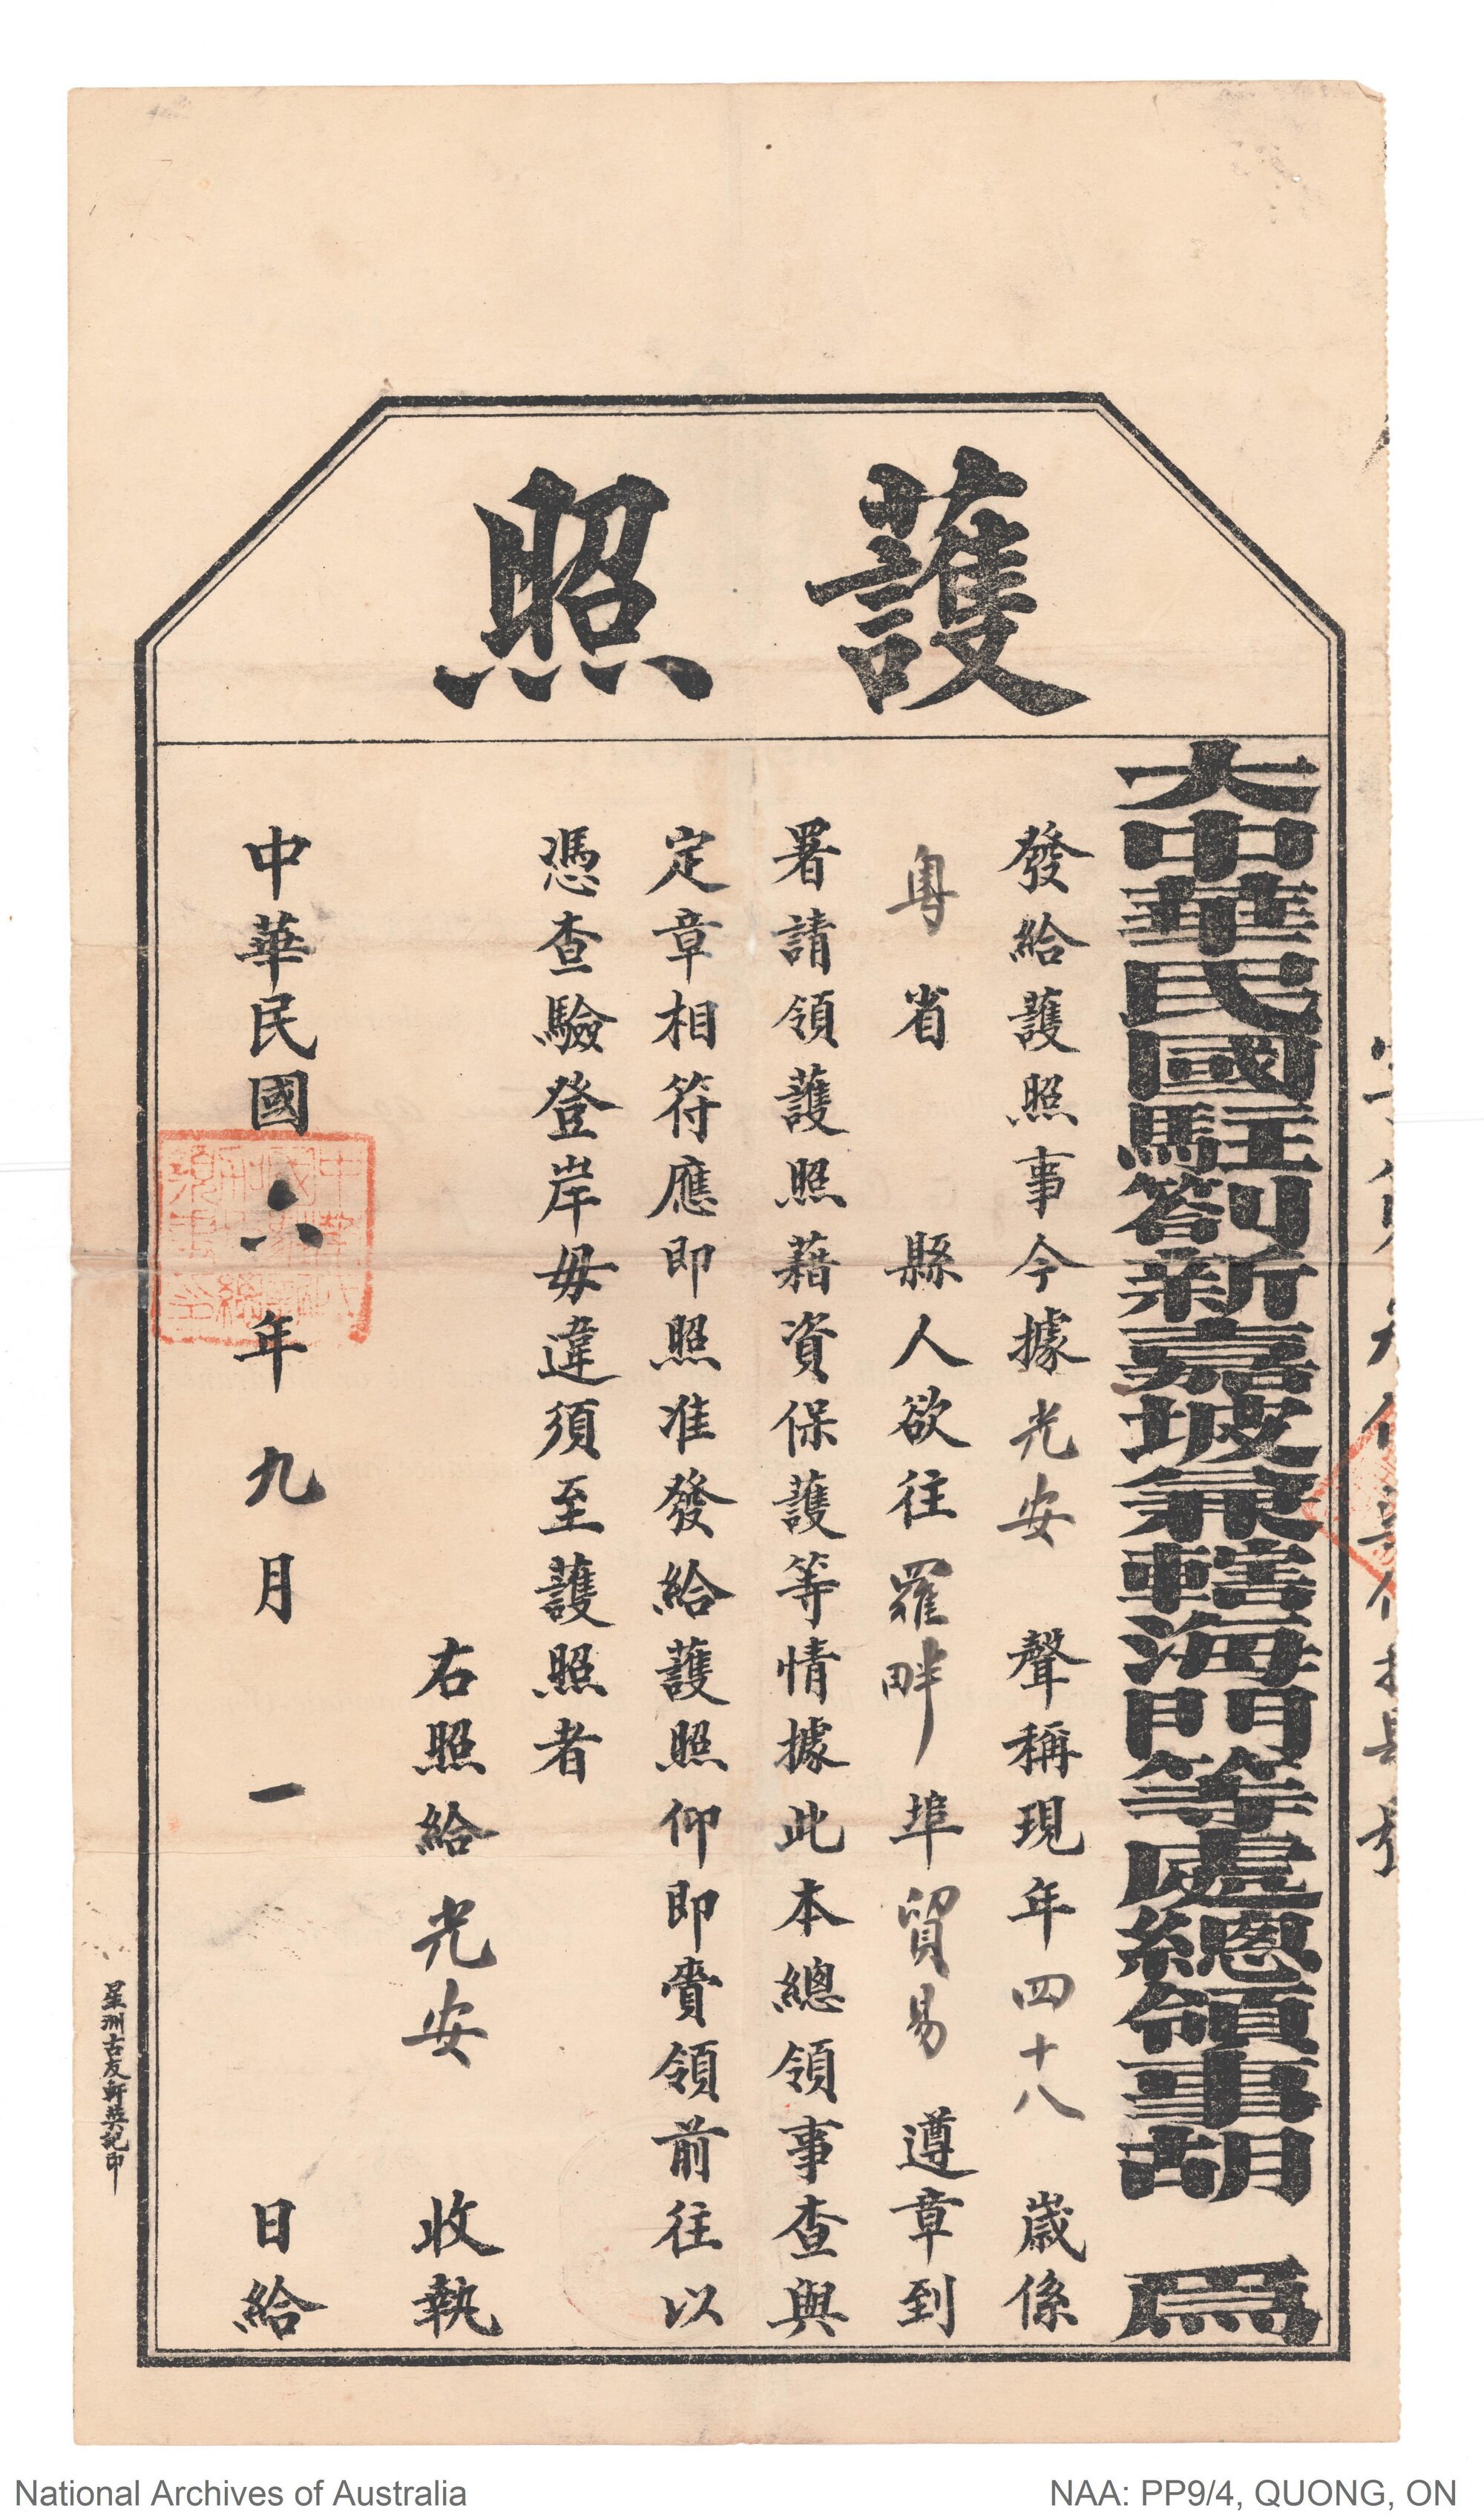 護照
大中華民國駐劄新嘉坡兼轄海門等處總領事胡 爲
發給護照事今據光安 聲稱現年四十八歲係
粤省 縣人欲往羅畔埠貿易遵章到
署請領護照藉資保護等情據此本總領事查與
定章相符應即照准發給護照仰即賫領前往以
憑查驗登岸毋違須至護照者
右照給光安 收執
中華民國六年九月一日給
星洲古友軒英記印
National Archives of Australia
NAA: PP9/4, QUONG, ON